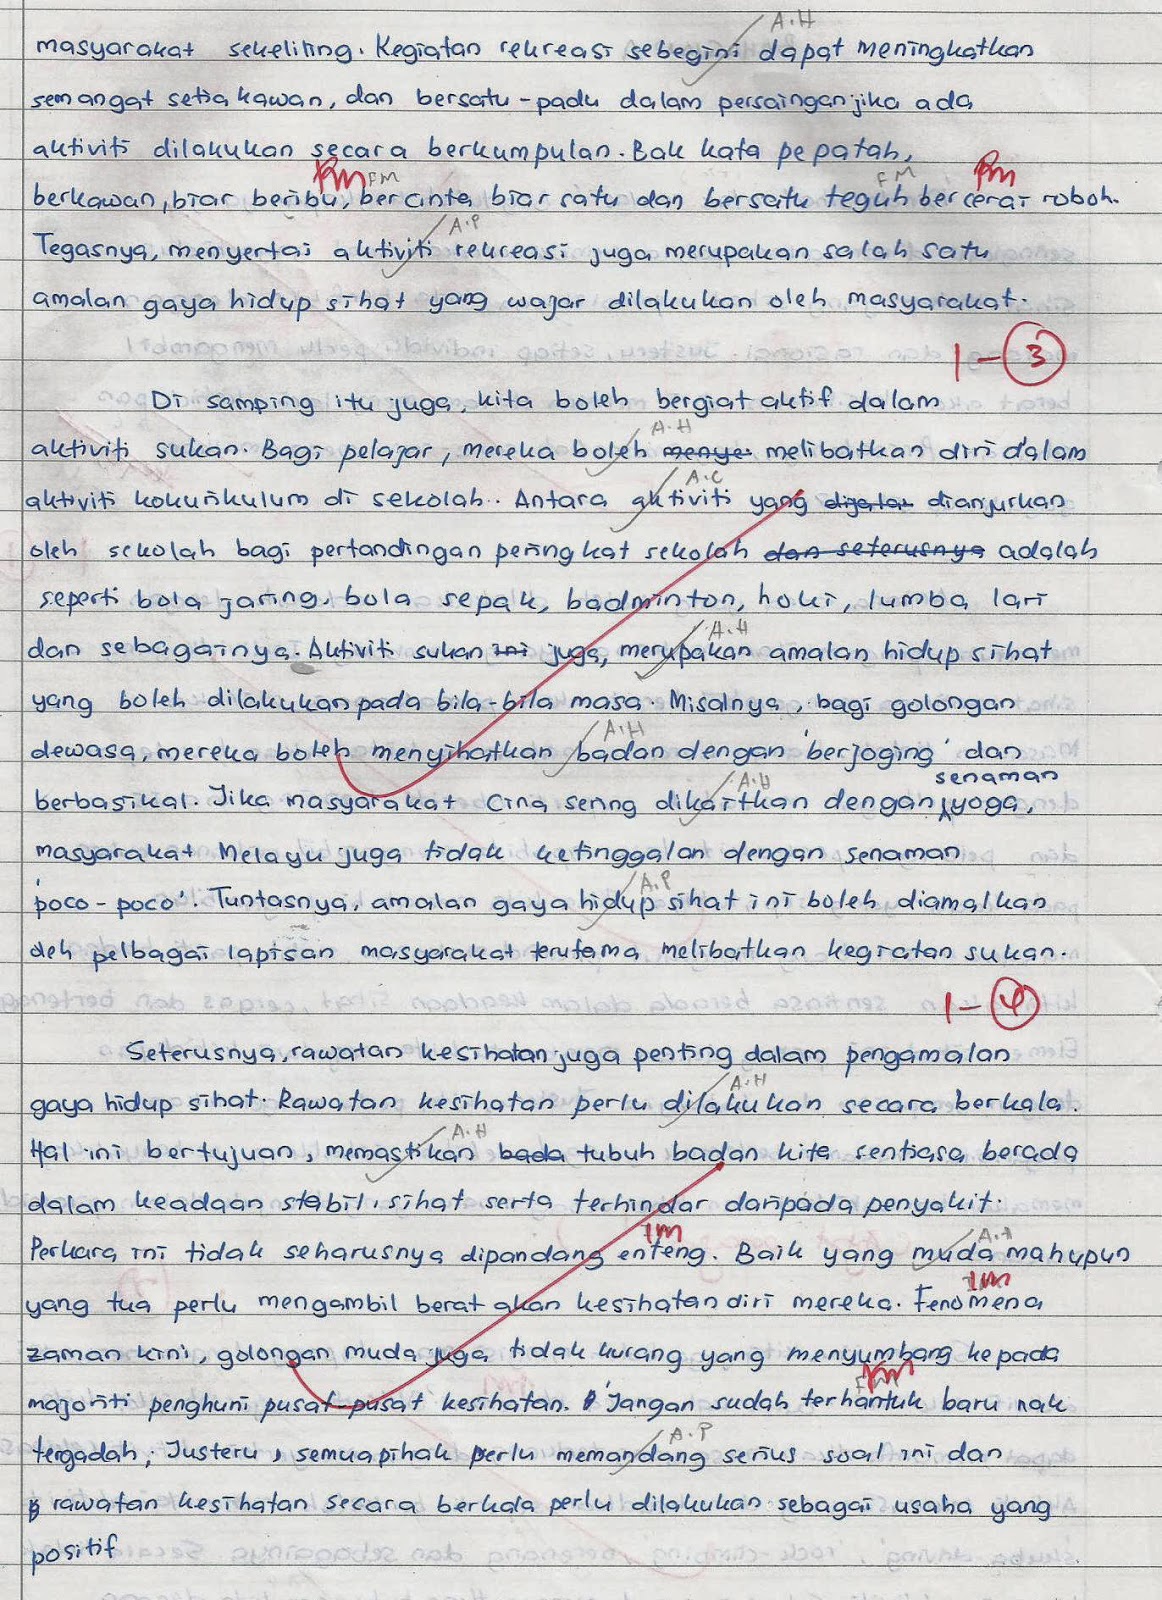 A.H
masyarakat sekeliling. Kegiatan rekreasi sebegini dapat meningkatkan
semangat setia kawan, dan bersatu-padu dalam persaingan jika ada
aktiviti dilakukan secara berkumpulan. Bak kata pepatah,
FM FM FM FM
berkawan, biar beribu, bercinta biar satu dan bersatu teguh bercerai roboh.
A.P
Tegasnya, menyertai aktiviti rekreasi juga merupakan salah satu
amalan gaya hidup sihat yang wajar dilakukan oleh masyarakat.
1 - 3
Di samping itu juga, kita boleh bergiat aktif dalam
A.H
aktiviti sukan. Bagi pelajar, mereka boleh menye melibatkan diri dalam
A.C
aktiviti kokurikulum di sekolah.. Antara aktiviti yang dianjurkan
oleh sekolah bagi pertandingan peringkat sekolah dan seterusnya adalah
seperti bola jaring, bola sepak, badminton, hoki, lumba lari
A.H
dan sebagainya. Aktiviti sukan ini juga, merupakan amalan hidup sihat
yang boleh dilakukan pada bila-bila masa. Misalnya, bagi golongan
A.H
dewasa, mereka boleh menyihatkan badan dengan 'berjoging' dan
A.H senaman
berbasikal. Jika masyarakat Cina sering dikaitkan dengan yoga,
masyarakat Melayu juga tidak ketinggalan dengan senaman
A.P
'poco-poco'. Tuntasnya, amalan gaya hidup sihat ini boleh diamalkan
oleh pelbagai lapisan masyarakat terutama melibatkan kegiatan sukan.
1 - 4
Seterusnya, rawatan kesihatan juga penting dalam pengamalan
A.H
gaya hidup sihat. Rawatan kesihatan perlu dilakukan secara berkala.
A.H
Hal ini bertujuan, memastikan bada tubuh badan kita sentiasa berada
dalam keadaan stabil, sihat serta terhindar daripada penyakit.
IM A.H
Perkara ini tidak seharusnya dipandang enteng. Baik yang muda mahupun
IM
yang tua perlu mengambil berat akan kesihatan diri mereka. Fenomena
zaman kini, golongan muda juga tidak kurang yang menyumbang kepada
FM FM
majoriti penghuni pusat-pusat kesihatan. 'Jangan sudah terhantuk baru nak
A.P
tergadah; Justeru, semua pihak perlu memandang serius soal ini dan
rawatan kesihatan secara berkala perlu dilakukan sebagai usaha yang
positif